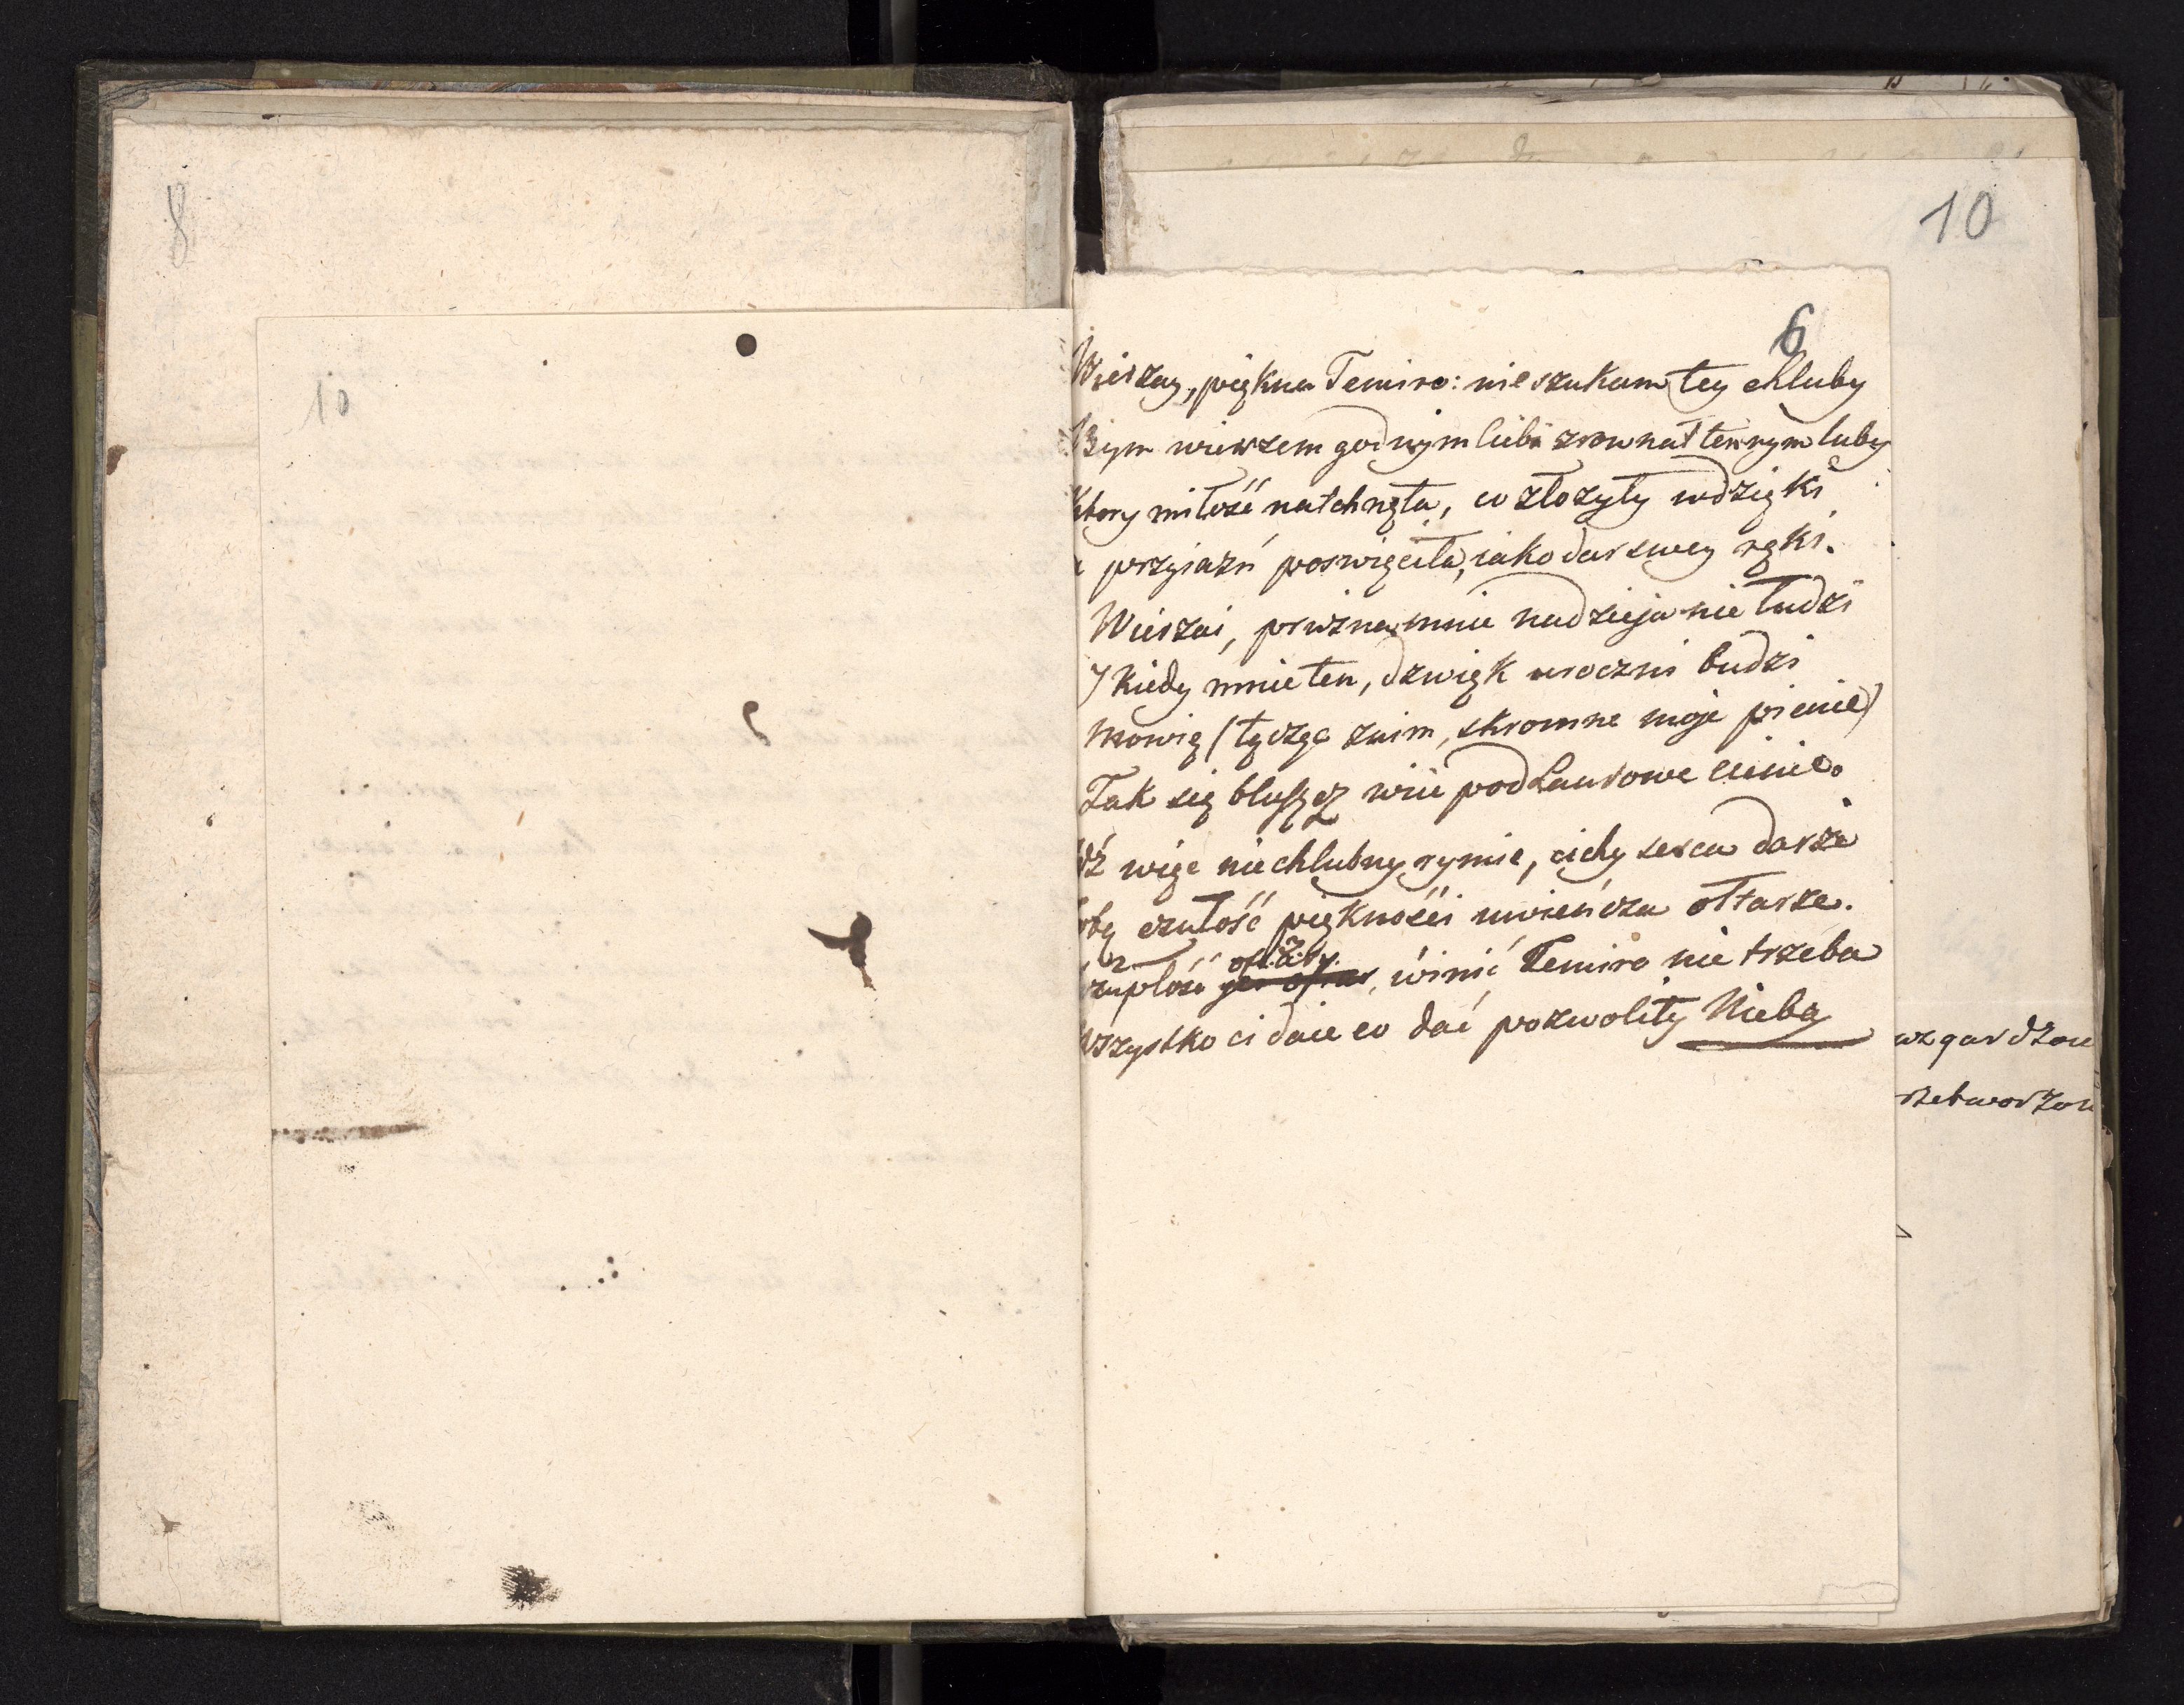 8
10
10
6
Wierzay, piękna Temiro: nie szukam tey chluby
Bym wierszem godnym Ciebi zrownał ten rym luby
Ktory miłość natchnęła, co złożyły wdzięki
a przyiazń poswięciła, iako dar swey ręki.
Wierzai, prożna mnie nadzieja nie łudzi
I kiedy mnie ten, dzwięk uroczni budzi
Mowię (łącząc znim, skromne moje pienie)
Tak się bluszcz wiie pod Laurowe cienie.
dź więc niechlubny rymie, cichy serca darze
oby czułość piękności uwieńcza ołtarze.
2 2
szupłość ofiary, winić Temiro nie trzeba
Wszystko ci daie co dać pozwoliły Nieba
wzgardzon
rzetworzon